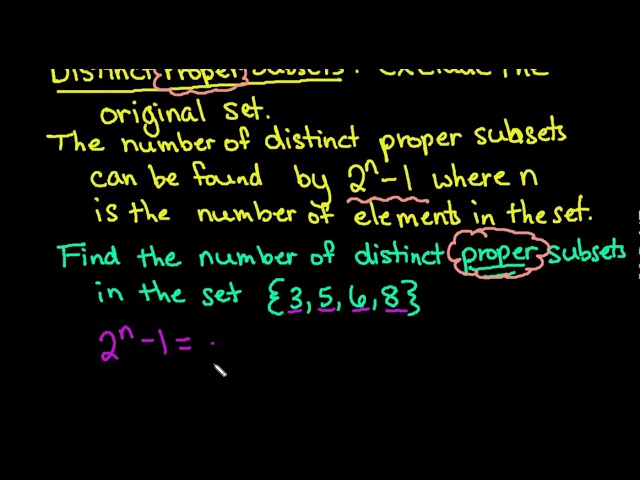 Distinct Proper Subsets: exclude the
original set.
The number of distinct proper subsets
can be found by 2ⁿ-1 where n
is the number of elements in the set.
Find the number of distinct proper subsets
in the set {3, 5, 6, 8}
2ⁿ-1=